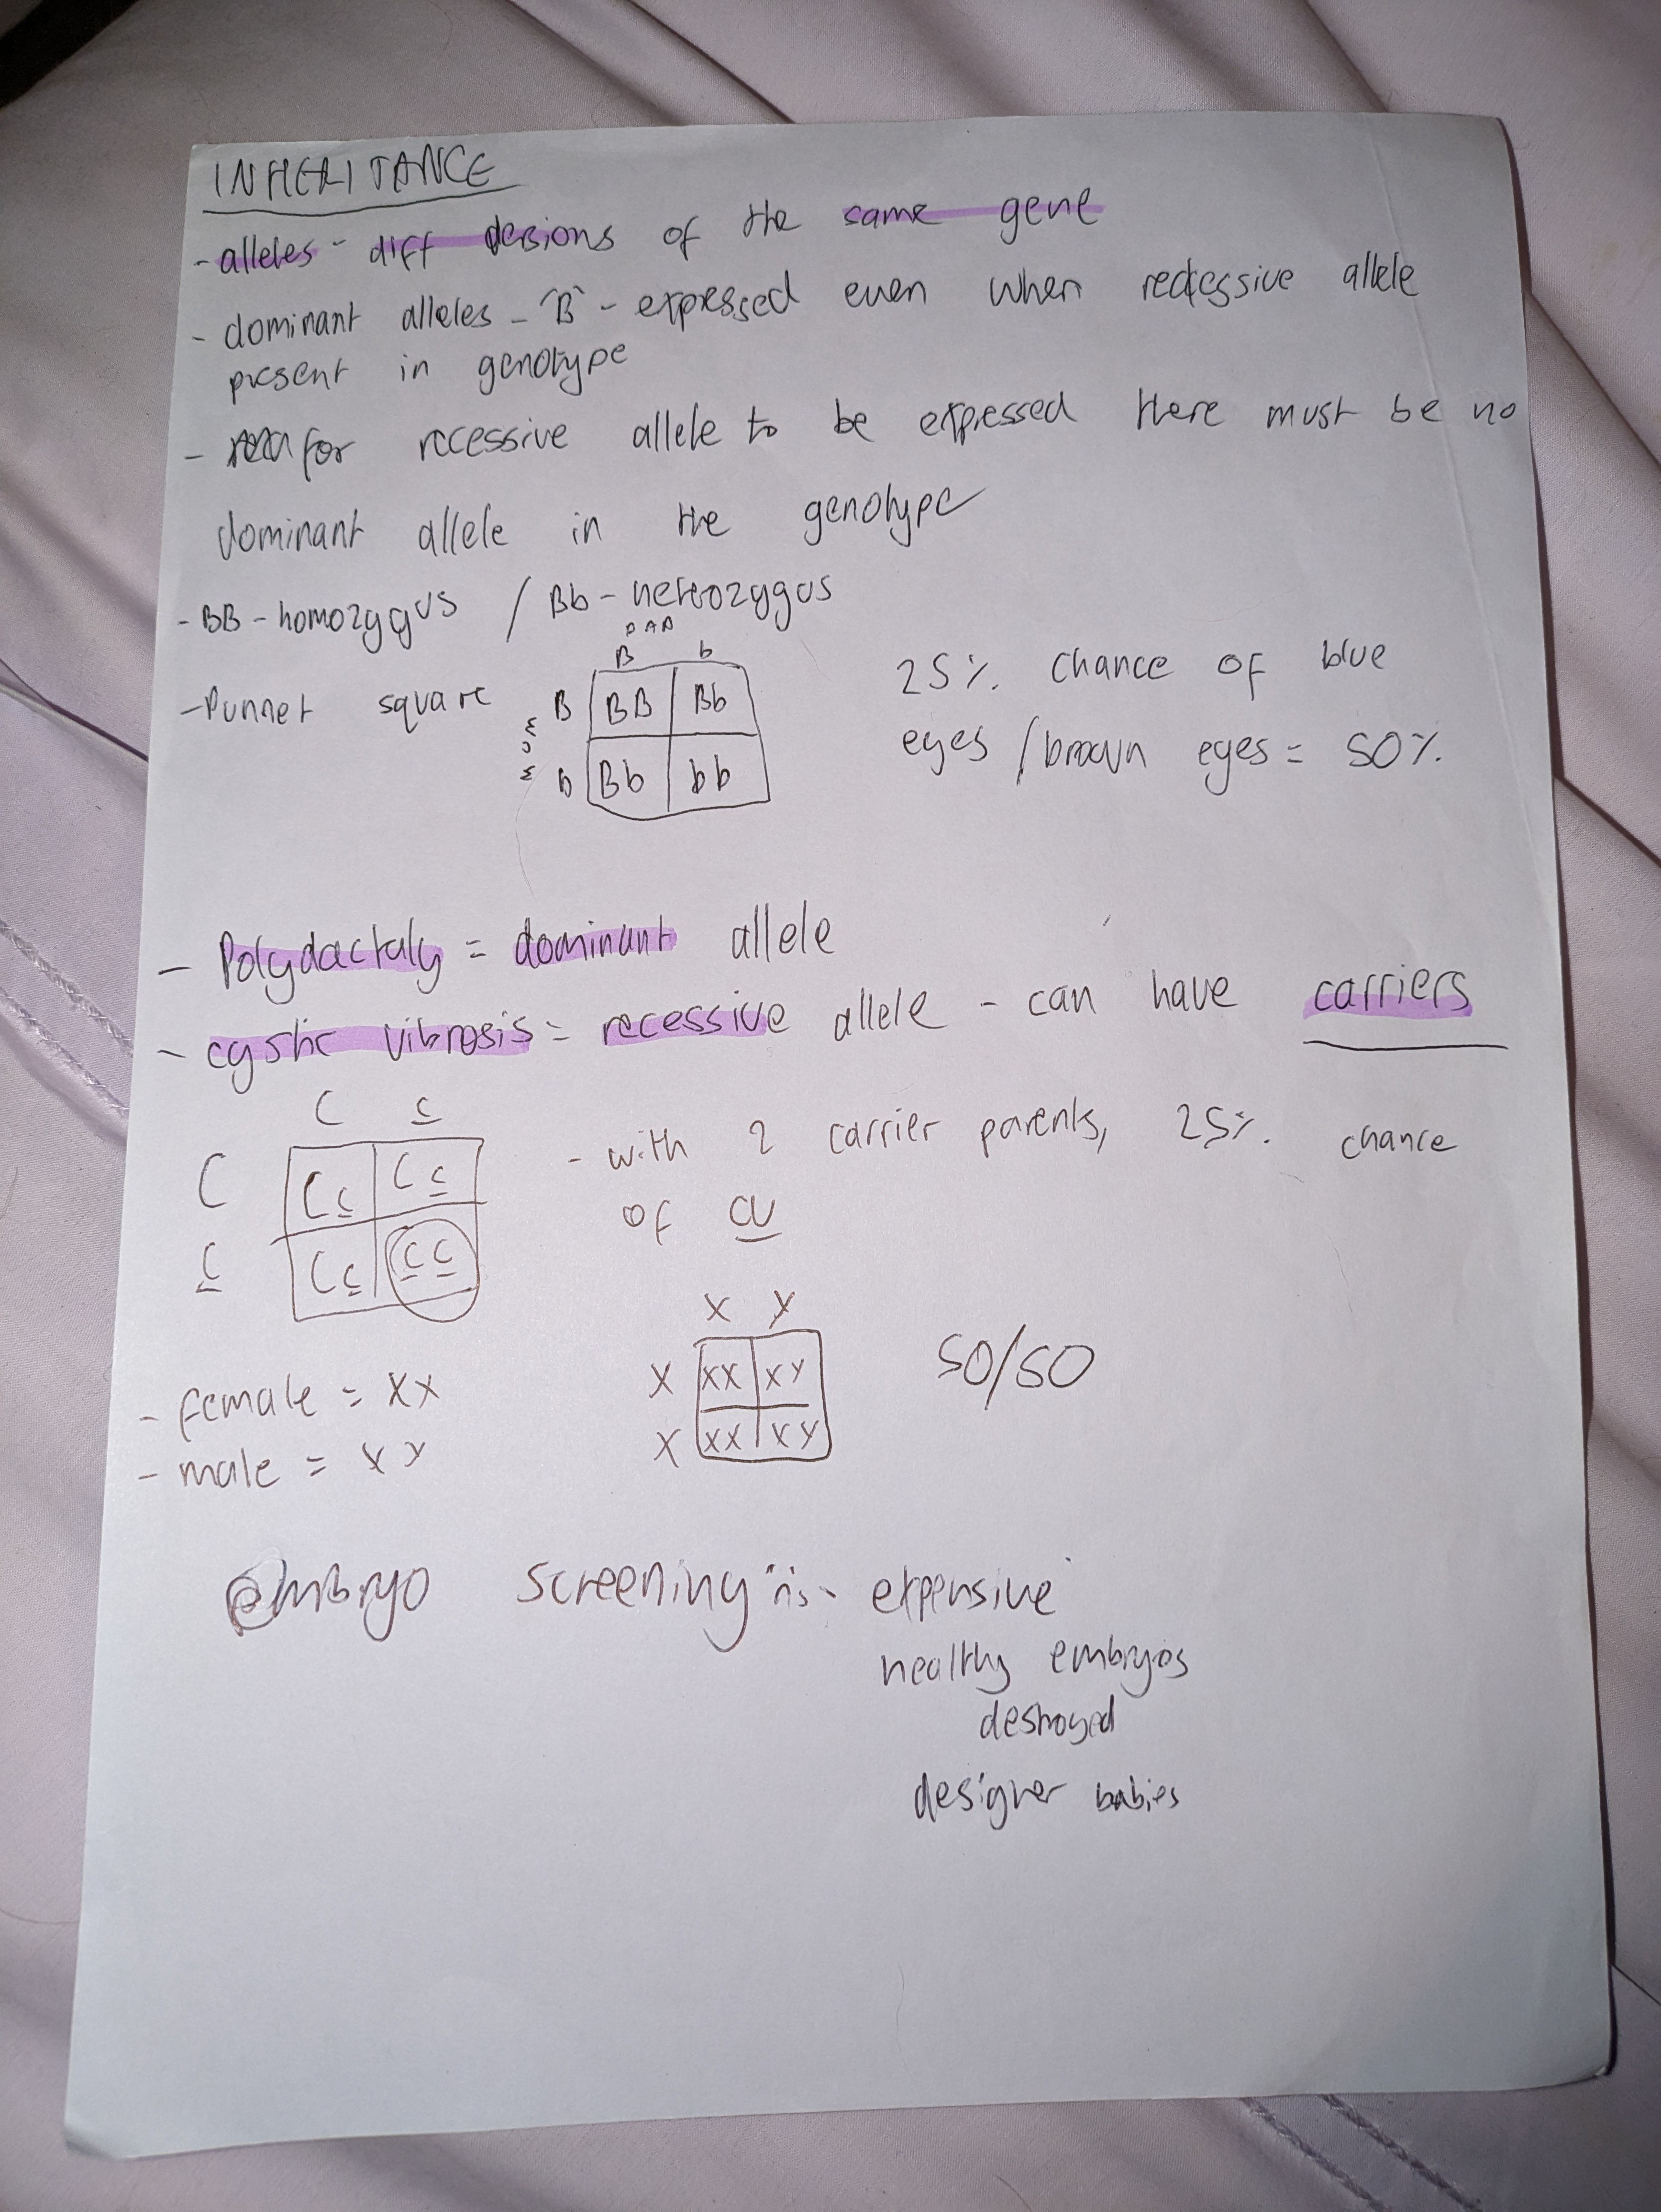 INHERITANCE
- alleles - diff versions of the same gene
- dominant alleles - "B" - expressed even when recessive allele
present in genotype
- for recessive allele to be expressed there must be no
dominant allele in the genotype
- BB - homozygus / Bb - heterozygus
DAD
B b
- Punnet square
MOM
B BB Bb
b Bb bb
25% chance of blue
eyes / brown eyes = 50%
- Polydactaly = dominant allele
- cystic vibrosis = recessive allele - can have carriers
C c
C Cc Cc
c Cc cc
- with 2 carrier parents, 25% chance
of CV
- female = XX
- male = XY
X Y
X XX XY
X XX XY
50/50
embryo screening is - expensive
healthy embryos
destroyed
designer babies